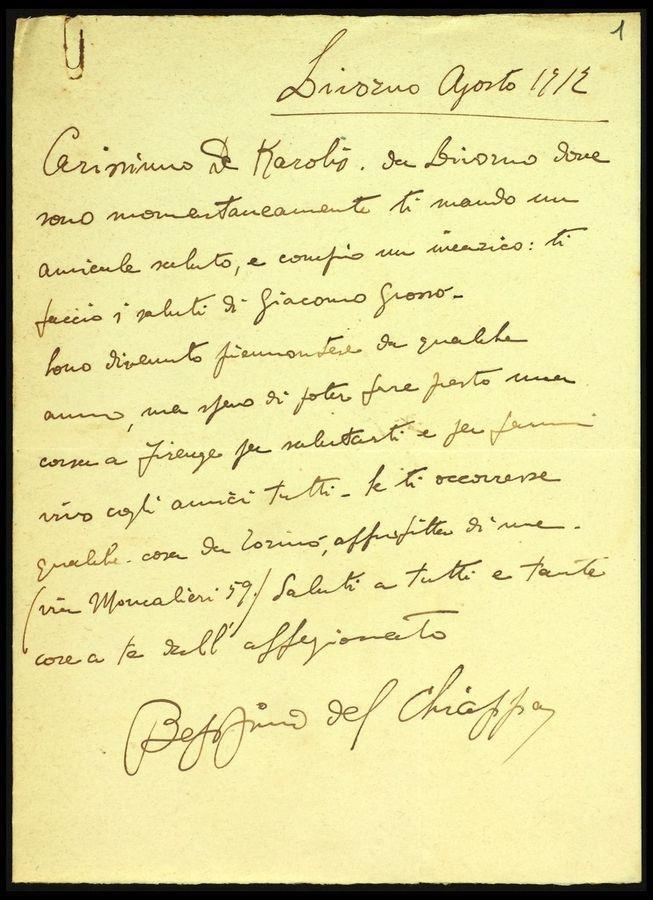 1
Livorno Agosto 1912
Carissimo De Karolis. da Livorno dove
sono momentaneamente ti mando un
amicale saluto, e compio un incarico: ti
faccio i saluti di Giacomo Grosso-
Sono divenuto piemontese da qualche
anno, ma spero di poter fare presto una
corsa a Firenze per salutarti e per farmi
vivo cogli amici tutti - Se ti occorresse
qualche cosa da Torino, approfitta di me.
(via Moncalieri 59.) Saluti a tutti e tante
cose a te dall'affezionato
Beppino del Chiappa